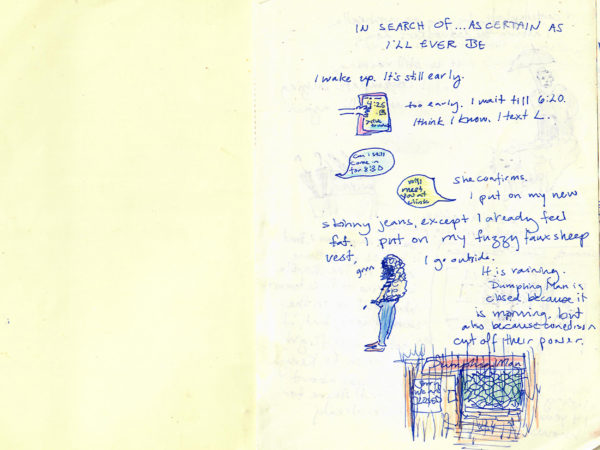 IN SEARCH OF...AS CERTAIN AS
I'LL EVER BE
I wake up. It's still early.
4:26
too early. I wait till 6:20.
I think I know. I text L.
Can i still
come in
for 8:30
will
meet
you at
she confirms.
I put on my new
skinny jeans, except I already feel
fat. I put on my fuzzy faux sheep
vest,
grrrr
I go outside.
It is raining.
Dumpling Man is
closed because it
is morning, but
also because conedison
cut off their power.
Dumpling Man
Sorry
We are
CLOSED